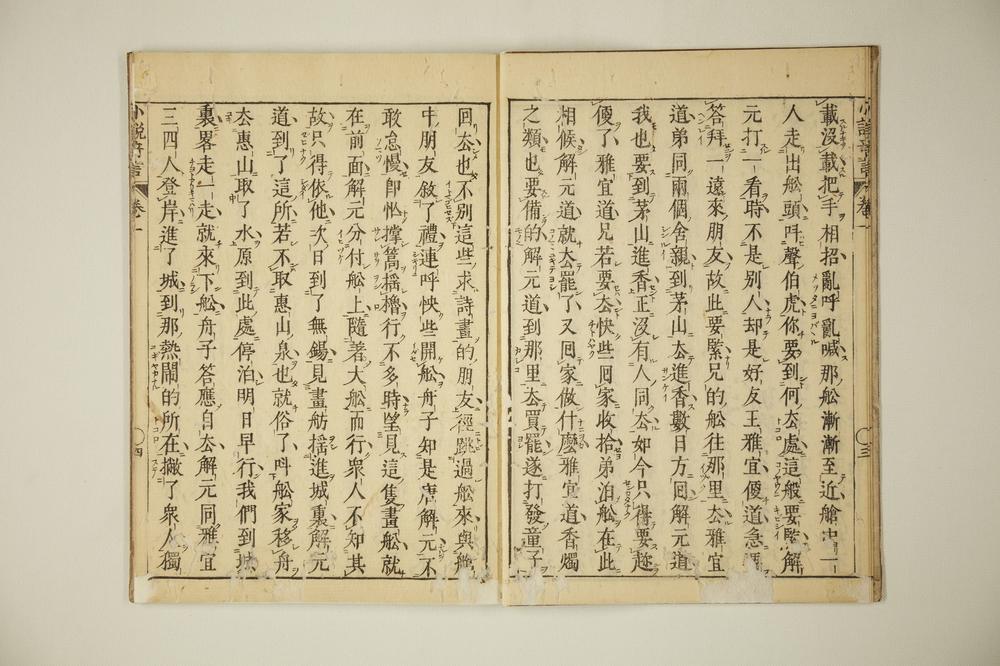 小說奇言 卷一 三
載沒載把手相招亂呼亂喊那舩漸漸至近艙中一
人走出舩頭呌聲伯虎你要到何去處這般要緊解
元打一看時不是別人却是好友王雅宜便道急要
答拜一遠來朋友故此要緊兄的舩往那里去雅宜
道弟同兩個舍親到茅山去進香數日方囘解元道
我也要到茅山進香正沒有人同去如今只得要趂
便了雅宜道兄若要去快些囘家收拾弟泊舩在此
相候解元道就去罷了又囘家做什麽雅宜道香燭
之類也要備的解元道到那里去買罷遂打發童子
回去也不別這些求詩畫的朋友徑跳過舩來與艙
中朋友敘了禮連呼快些開舩舟子知是唐解元不
敢怠慢卽忙撑篙搖櫓行不多時望見這隻畫舩就
在前面解元分付舩上隨著大舩而行衆人不知其
故只得依他次日到了無錫見畫舫搖進城裏解元
道到了這所若不取惠山泉也就俗了呌舩家移舟
去惠山取了水原到此處停泊明日早行我們到城
裏畧走一走就來下舩舟子答應自去解元同雅宜
三四人登岸進了城到那熱鬧的所在撇了衆人獨
小說奇言 卷一 四